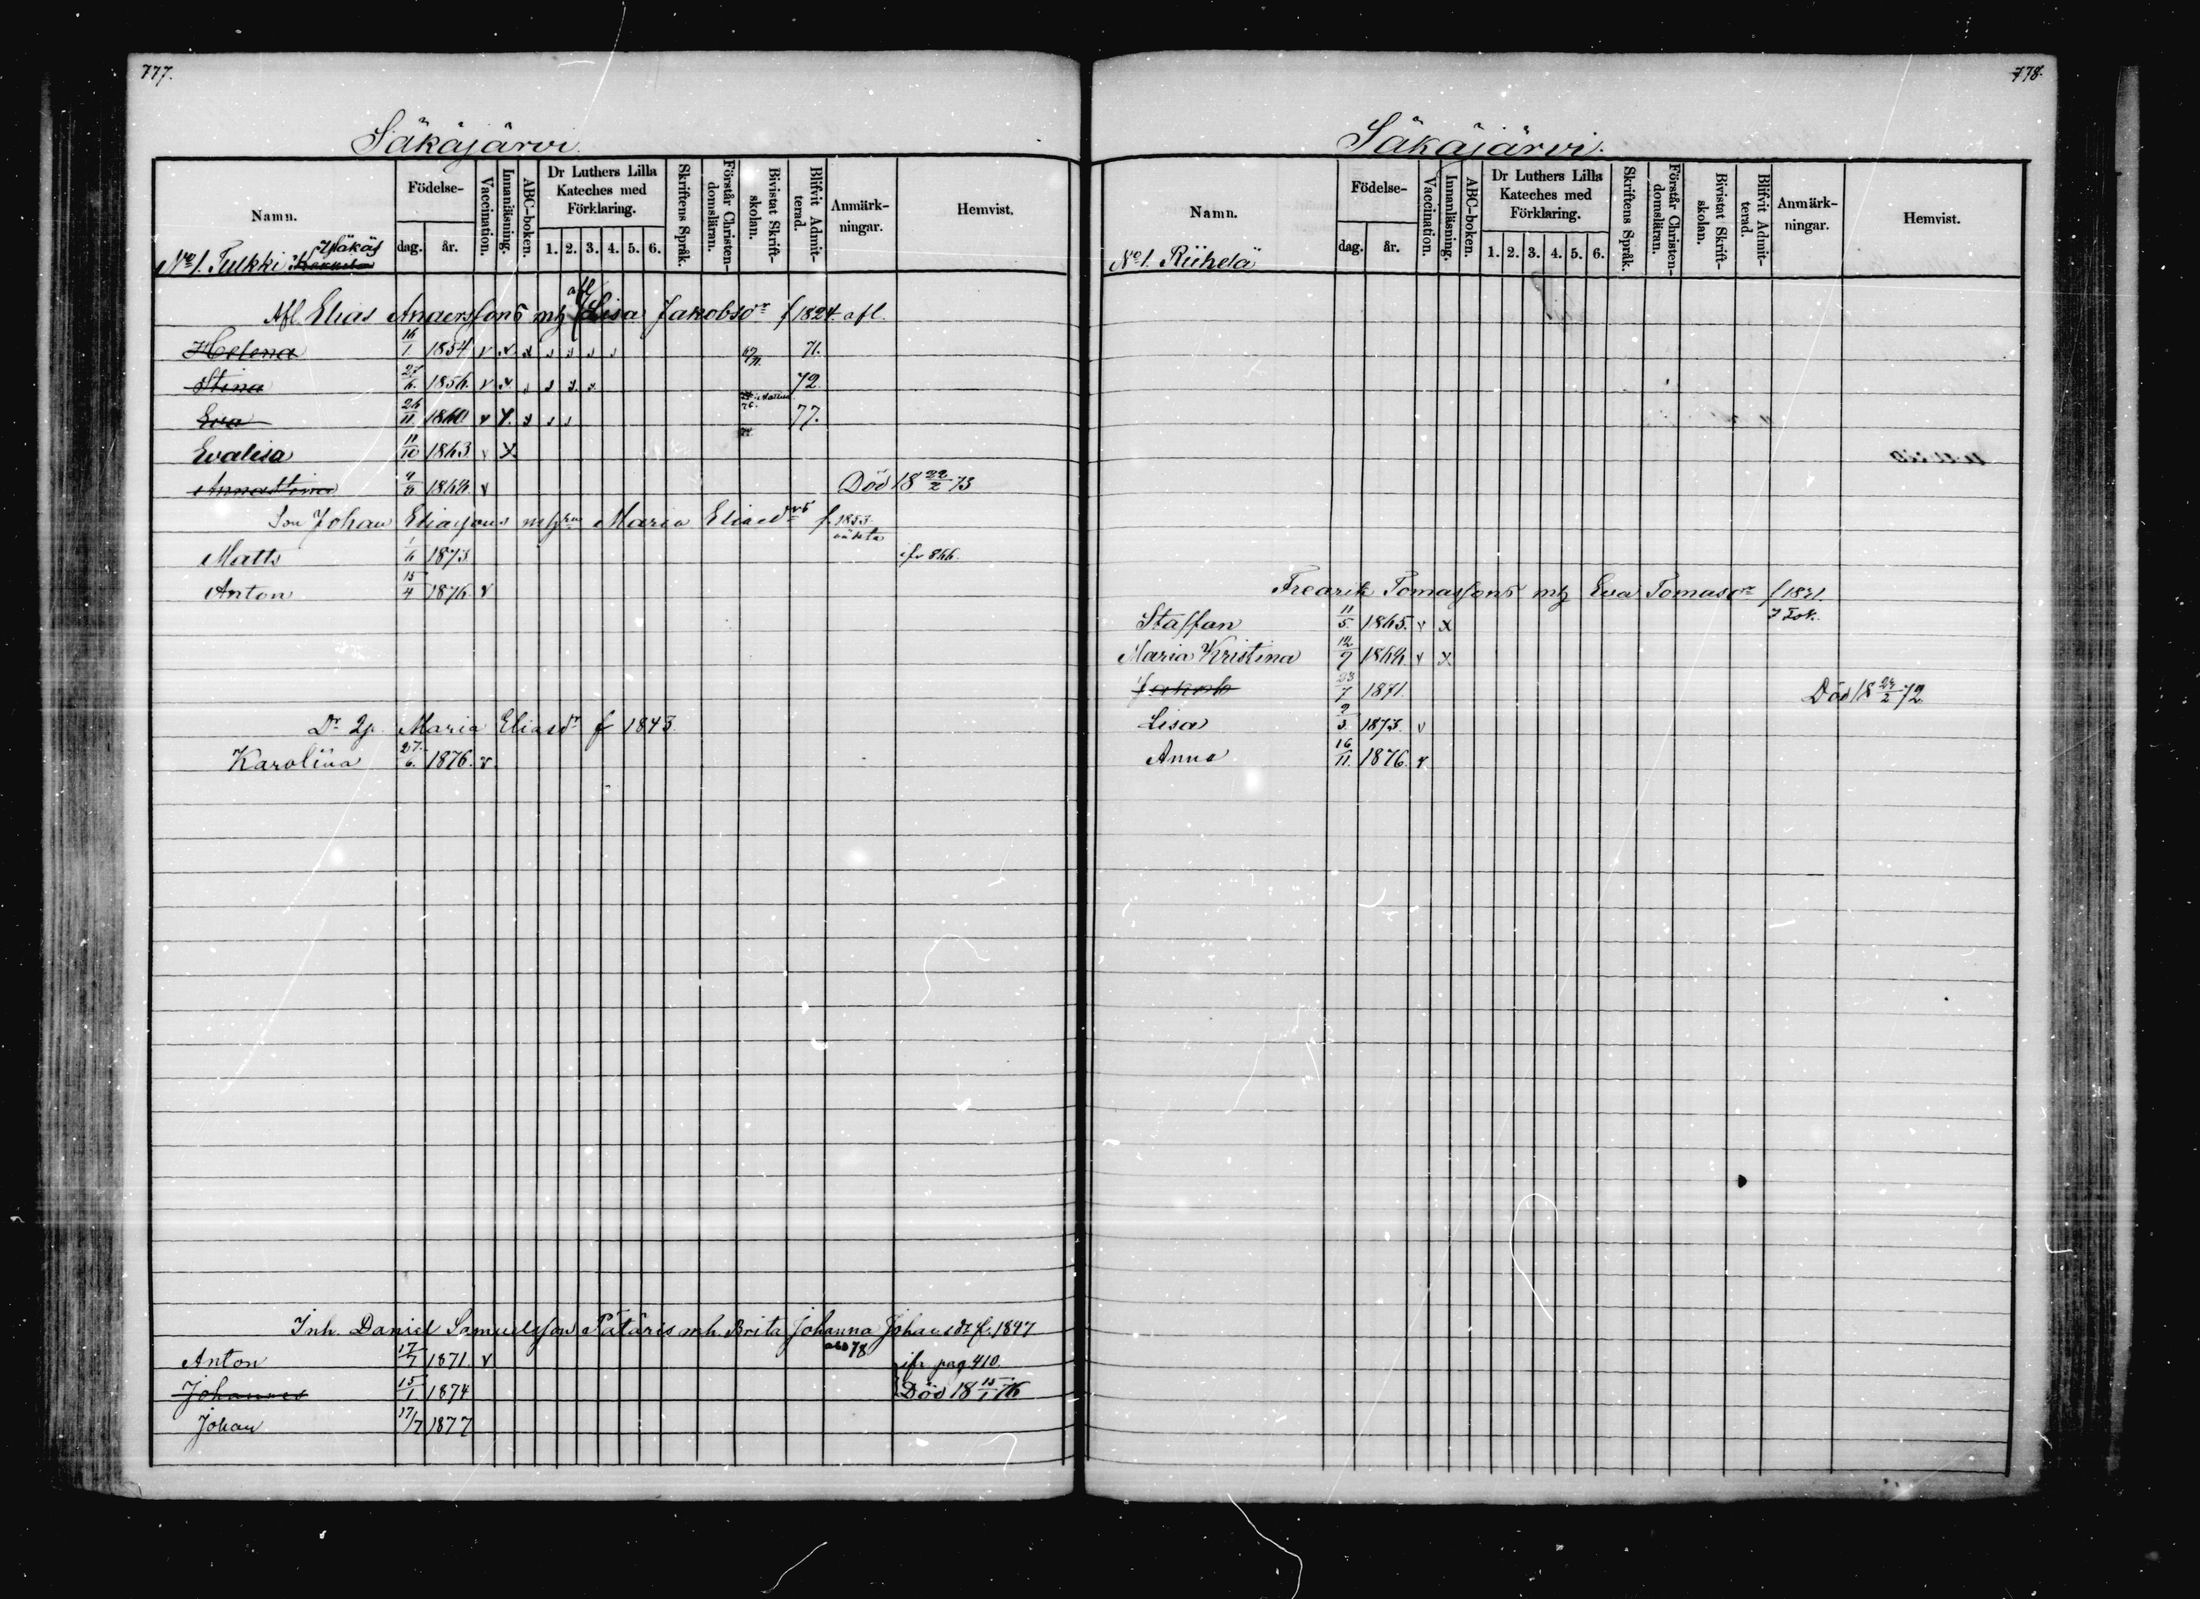 777.
Säkäjärvi.
Namn. Födelse- dag. år. Vaccination. Innanläsning. ABC-boken. Dr Luthers Lilla Kateches med Förklaring. 1. 2. 3. 4. 5. 6. Skriftens Språk. Förstår Christendomsläran. Bivistat Skriftskolan. Blifvit Admitterad. Anmärkningar. Hemvist.
No 1. Tulkki
Afl. Elias Anderssons mh afl Lisa Jakobsdr f 1824. afl.
Helena 16/1 1854 v x x 71.
Stina 27/6 1856. v x 72
Eva 26/11 1860. v x x 77.
Evalisa 11/10 1863 v x
Annastina 9/8 1866 v Död 18 22/2 73
Son Johan Eliassons mh Maria Eliasdr f. 1853
Matts 1/6 1873. ifr 866.
Anton 15/4 1876. v
Dr 2p. Maria Eliasdr f 1843.
Karolina 27/6. 1876. v.
Inh. Daniel Samuelsson Pätäris mh. Brita Johanna Johansdr f. 1847
Anton 17/7 1871. v 78 ifr pag. 410.
Johannes 15/1 1874 Död 18 15/1 76
Johan 17/7 1877
778.
Säkäjärvi.
Namn. Födelse- dag. år. Vaccination. Innanläsning. ABC-boken. Dr Luthers Lilla Kateches med Förklaring. 1. 2. 3. 4. 5. 6. Skriftens Språk. Förstår Christendomsläran. Bivistat Skriftskolan. Blifvit Admitterad. Anmärkningar. Hemvist.
No 1. Riihelä
Fredrik Tomassons mh Eva Tomasdr f
Staffan 11/5 1865. v x
Maria Kristina 12/9 1868 v x
Jakob 23/7 1871. Död 18 24/2 72
Lisa 2/3 1873. v
Anna 16/11. 1876. v